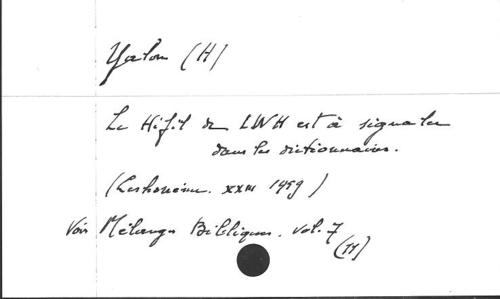 Yalon (H)
Le Hifil de LWH est à signaler
dans les dictionnaires.
(Leshonénu. XXIII 1959)
Voir Mélanges Bibliques. vol. 7
(11)